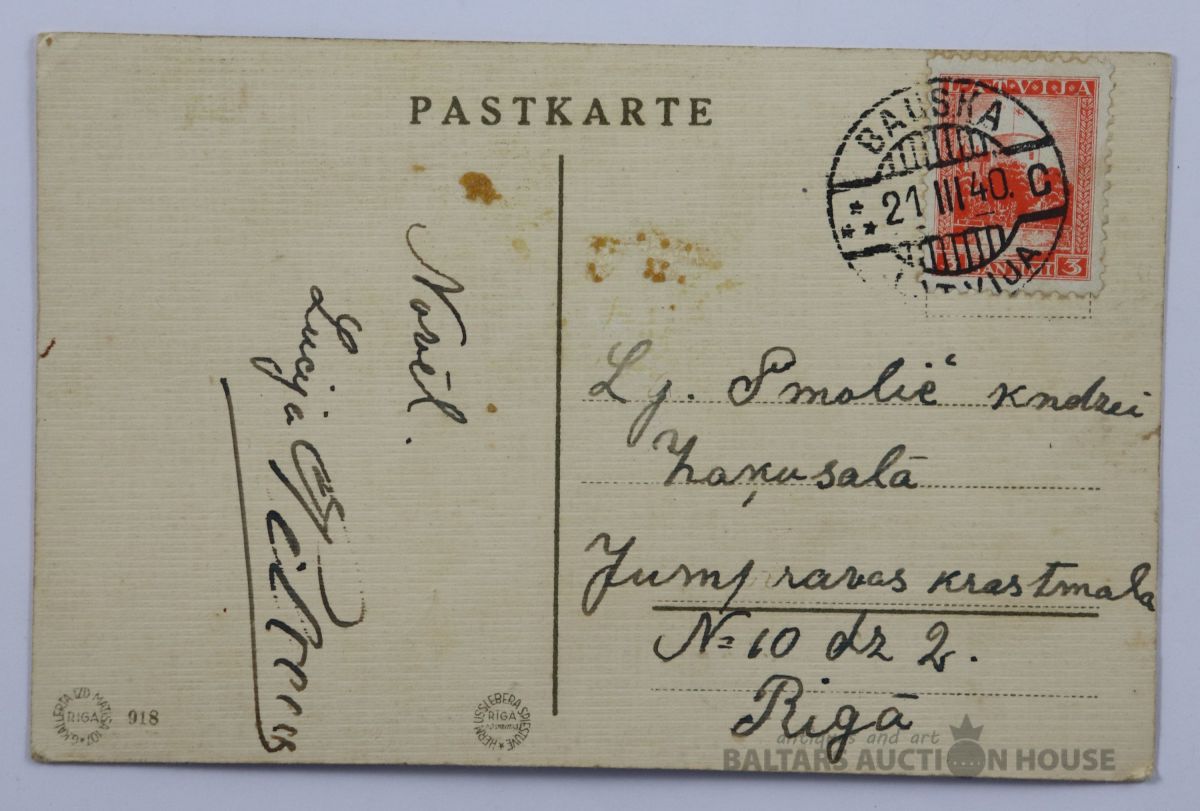 PASTKARTE
LATVIJA
3
BAUSKA
21 III 40. C
LATVIJA
Novēl.
Lucija
Lj. Smolič kndzei
Zaķusalā
Jumpravas krastmala
N= 10 dz 2.
Rīgā
G. KALLERTA IZD. MATISA 107
RIGA
918
RIGA
antiques and art
BALTARS AUCTION HOUSE